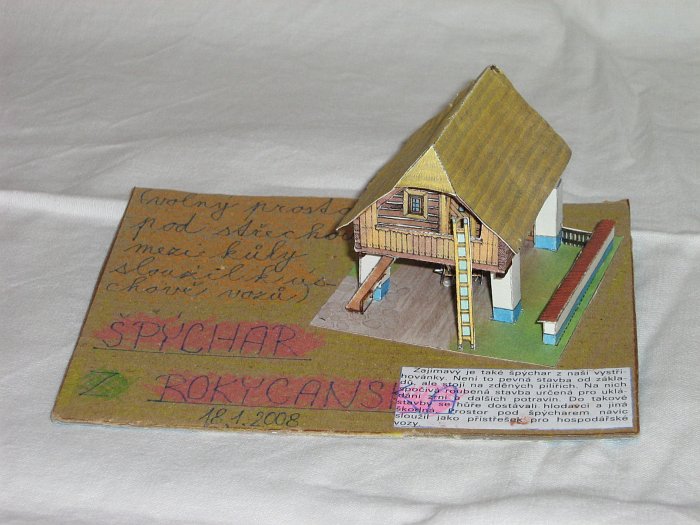 (volný prostor
pod střechou
mezi kůly
sloužil k ús-
chově vozů)
ŠPÝCHAR
Z ROKYCANSKA
18.1.2008
Zajímavý je také špýchar z naší vystři
hovánky. Není to pevná stavba od zákla-
dů, ale stojí na zděných pilířích. Na nich
spočívá roubená stavba určená pro uklá-
dání zrní a dalších potravin. Do takové
stavby se hůře dostávali hlodavci a jiná
škodná. Prostor pod špýcharem navíc
sloužil jako přístřešek pro hospodářské
vozy.